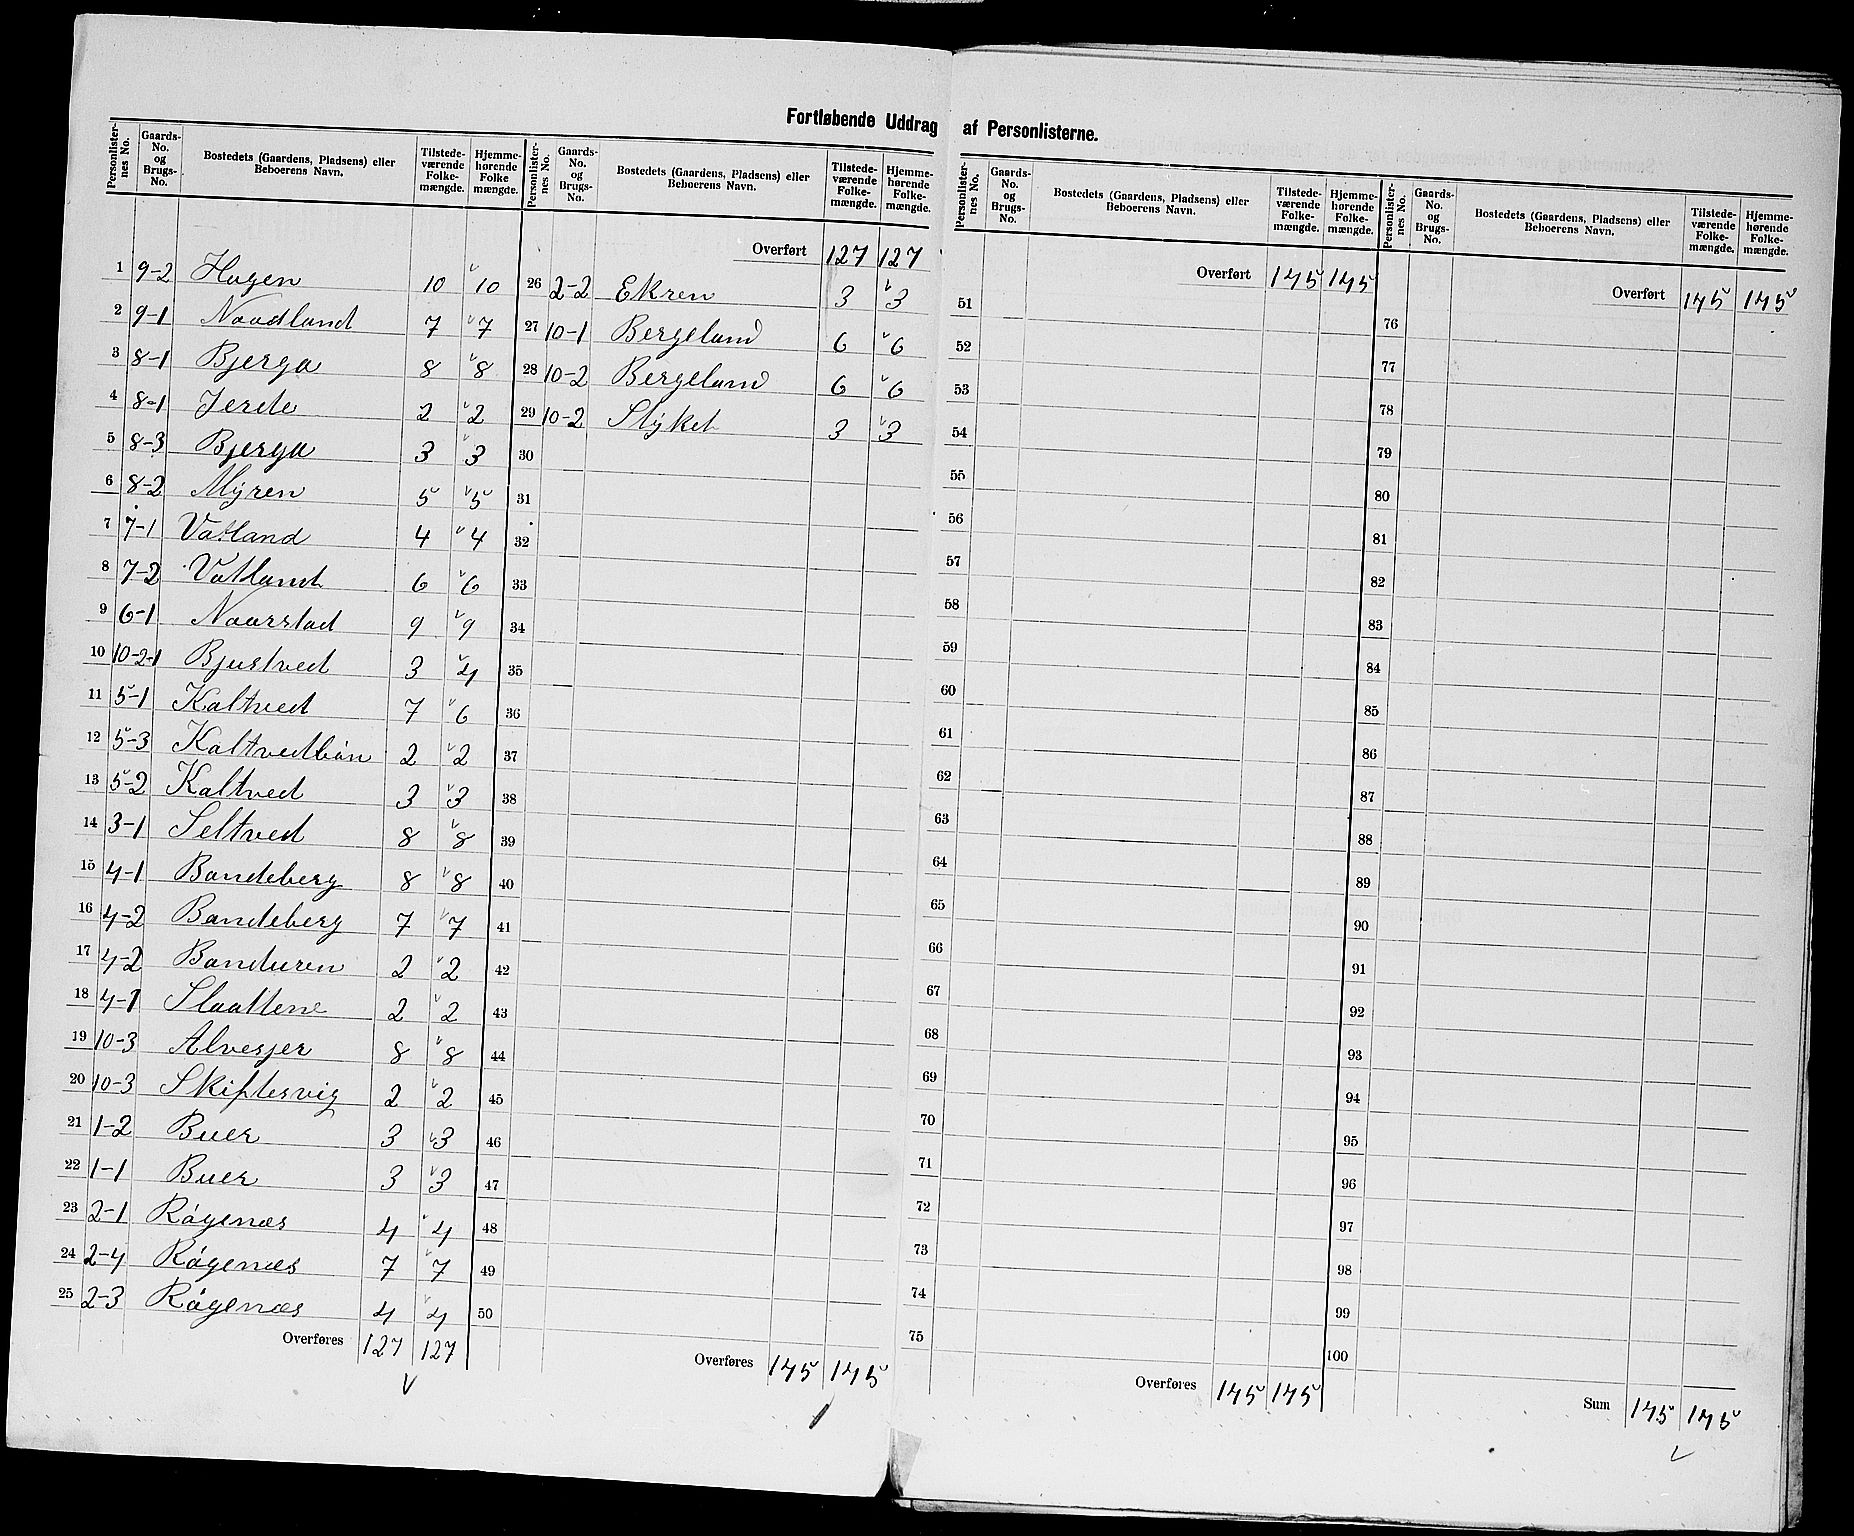 Fortløbende Uddrag af Personlisterne.
Personlisternes No. Gaards-No. og Brugs-No. Bostedets (Gaardens, Pladsens) eller Beboerens Navn. Tilstedeværende Folkemængde. Hjemmehørende Folkemængde.
1 9-2 Hagen 10 10
2 9-1 Naadland 7 7
3 8-1 Bjerga 8 8
4 8-1 Jerde 2 2
5 8-3 Bjerga 3 3
6 8-2 Myren 5 5
7 7-1 Vatland 4 4
8 7-2 Vatland 6 6
9 6-1 Naarstad 9 9
10 10-2-1 Bjustved 3 4
11 5-1 Kaltved 7 6
12 5-3 Kaltvedbøn 2 2
13 5-2 Kaltved 3 3
14 3-1 Seltved 8 8
15 4-1 Bandeberg 8 8
16 4-2 Bandeberg 7 7
17 4-2 Banduren 2 2
18 4-1 Slaattene 2 2
19 10-3 Alvesjer 8 8
20 10-3 Skiftesvig 2 2
21 1-2 Buer 3 3
22 1-1 Buer 3 3
23 2-1 Røgenæs 4 4
24 2-4 Røgenæs 7 7
25 2-3 Røgenæs 4 4
Overføres 127 127
Personlisternes No. Gaards-No. og Brugs-No. Bostedets (Gaardens, Pladsens) eller Beboerens Navn. Tilstedeværende Folkemængde. Hjemmehørende Folkemængde.
Overført 127 127
26 2-2 Ekren 3 3
27 10-1 Bergeland 6 6
28 10-2 Bergeland 6 6
29 10-2 Styket 3 3
30
31
32
33
34
35
36
37
38
39
40
41
42
43
44
45
46
47
48
49
50
Overføres 145 145
Personlisternes No. Gaards-No. og Brugs-No. Bostedets (Gaardens, Pladsens) eller Beboerens Navn. Tilstedeværende Folkemængde. Hjemmehørende Folkemængde.
Overført 145 145
51
52
53
54
55
56
57
58
59
60
61
62
63
64
65
66
67
68
69
70
71
72
73
74
75
Overføres 145 145
Personlisternes No. Gaards-No. og Brugs-No. Bostedets (Gaardens, Pladsens) eller Beboerens Navn. Tilstedeværende Folkemængde. Hjemmehørende Folkemængde.
Overført 145 145
76
77
78
79
80
81
82
83
84
85
86
87
88
89
90
91
92
93
94
95
96
97
98
99
100
Sum 145 145